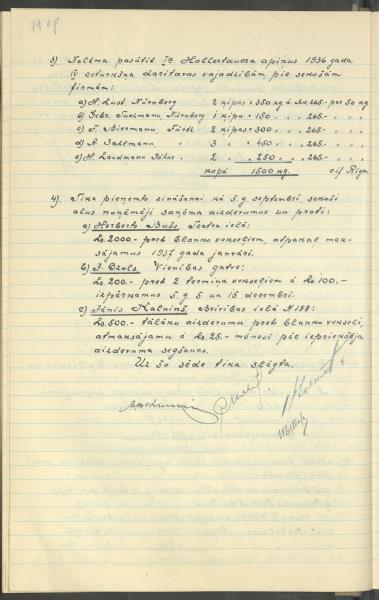 3) Nolēma pasūtīt Ia Hollertauera apiņus 1936 gada
IV ceturkšņa darītavas vajadzībām pie sekošām
firmām:
a) H. Lust. Nürnberg 2 ķīpas à 350 kg à Rm 265.- par 50 kg
b) Gebr. Tuchmann, Nürnberg 1 ķīpa " 150 " " " 265.- " "
c) F. Biermann, Fürth 2 ķīpas " 300 " " " 265.- " "
d) A. Sahlmann 3 " " 450 " " " 265.- " "
e) H. Landmann Söhne 2 " " 250 " " " 265.- " "
kopā 1500 kg. cif Rīga.
4) Tika pieņemts zināšanai ka š.g. septembrī, sekoši
alus noņēmēji saņēma aizdevumus un proti:
a) Herberts Bušs, Teatra ielā:
Ls. 2000.- pret blanko vekseļiem, atpakaļ mak-
sājamus 1937 gada janvārī.
b) J. Ozols Vienības gatve:
Ls. 200.- pret 2 termiņa vekseļiem à Ls. 100.-
izpērkamus š.g. 5 un 15 decembrī.
c) Jānis Kalniņš, Brīvības ielā № 188:
Ls. 500.- tālāku aizdevumu pret blanko vekseli,
atmaksājamu à Ls. 25.- mēnesī pēc iepriekšēja
aizdevuma segšanas.
Uz šo sēde tika slēgta.